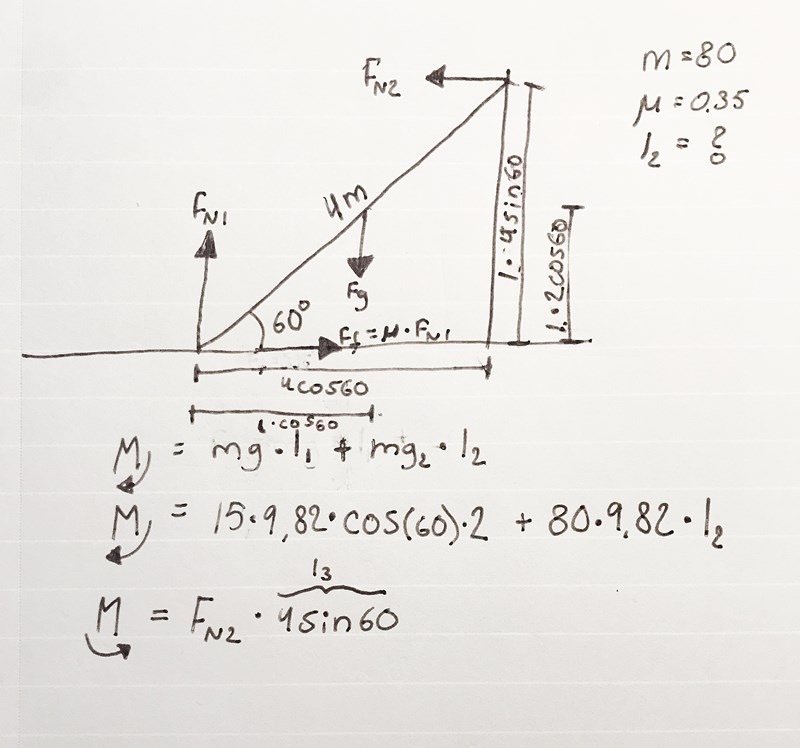 m=80
μ=0.35
l₂ = ?
F_N2
4m
F_N1
Fg
60°
F_f=μ·F_N1
1·4sin60
1·2cos60
4cos60
1·cos60
M = mg·l₁ + mg₂·l₂
M = 15·9,82·cos(60)·2 + 80·9,82·l₂
l₃
M = F_N2 · 4sin60